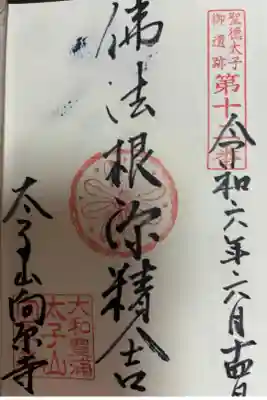 聖徳太子
御遺跡
第十
番
令和六年六月十四日
佛法根源精舎
大和豊浦
太子山
太子山向原寺